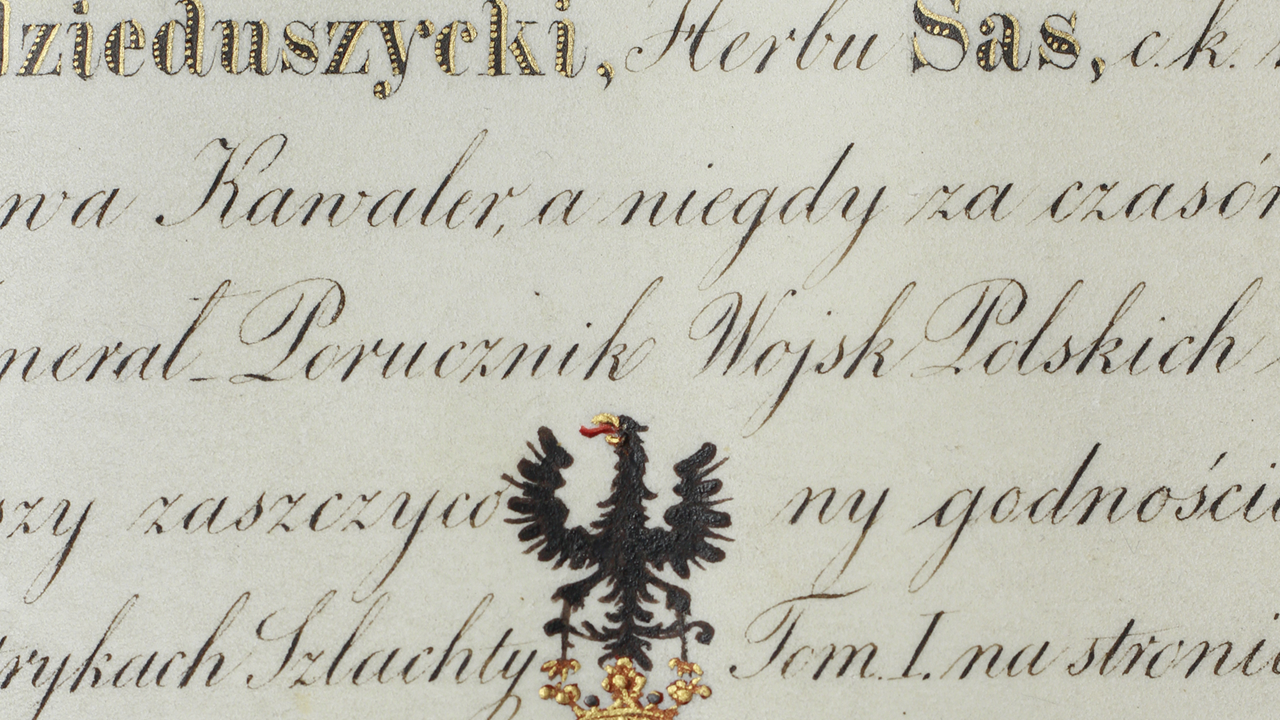 dzieduszycki, Herbu Sas, c. k.
wa Kawaler, a niegdy za czasów
nerał-Porucznik Wojsk Polskich
szy zaszczycony godnością
trykach Szlachty Tom. I. na stronie